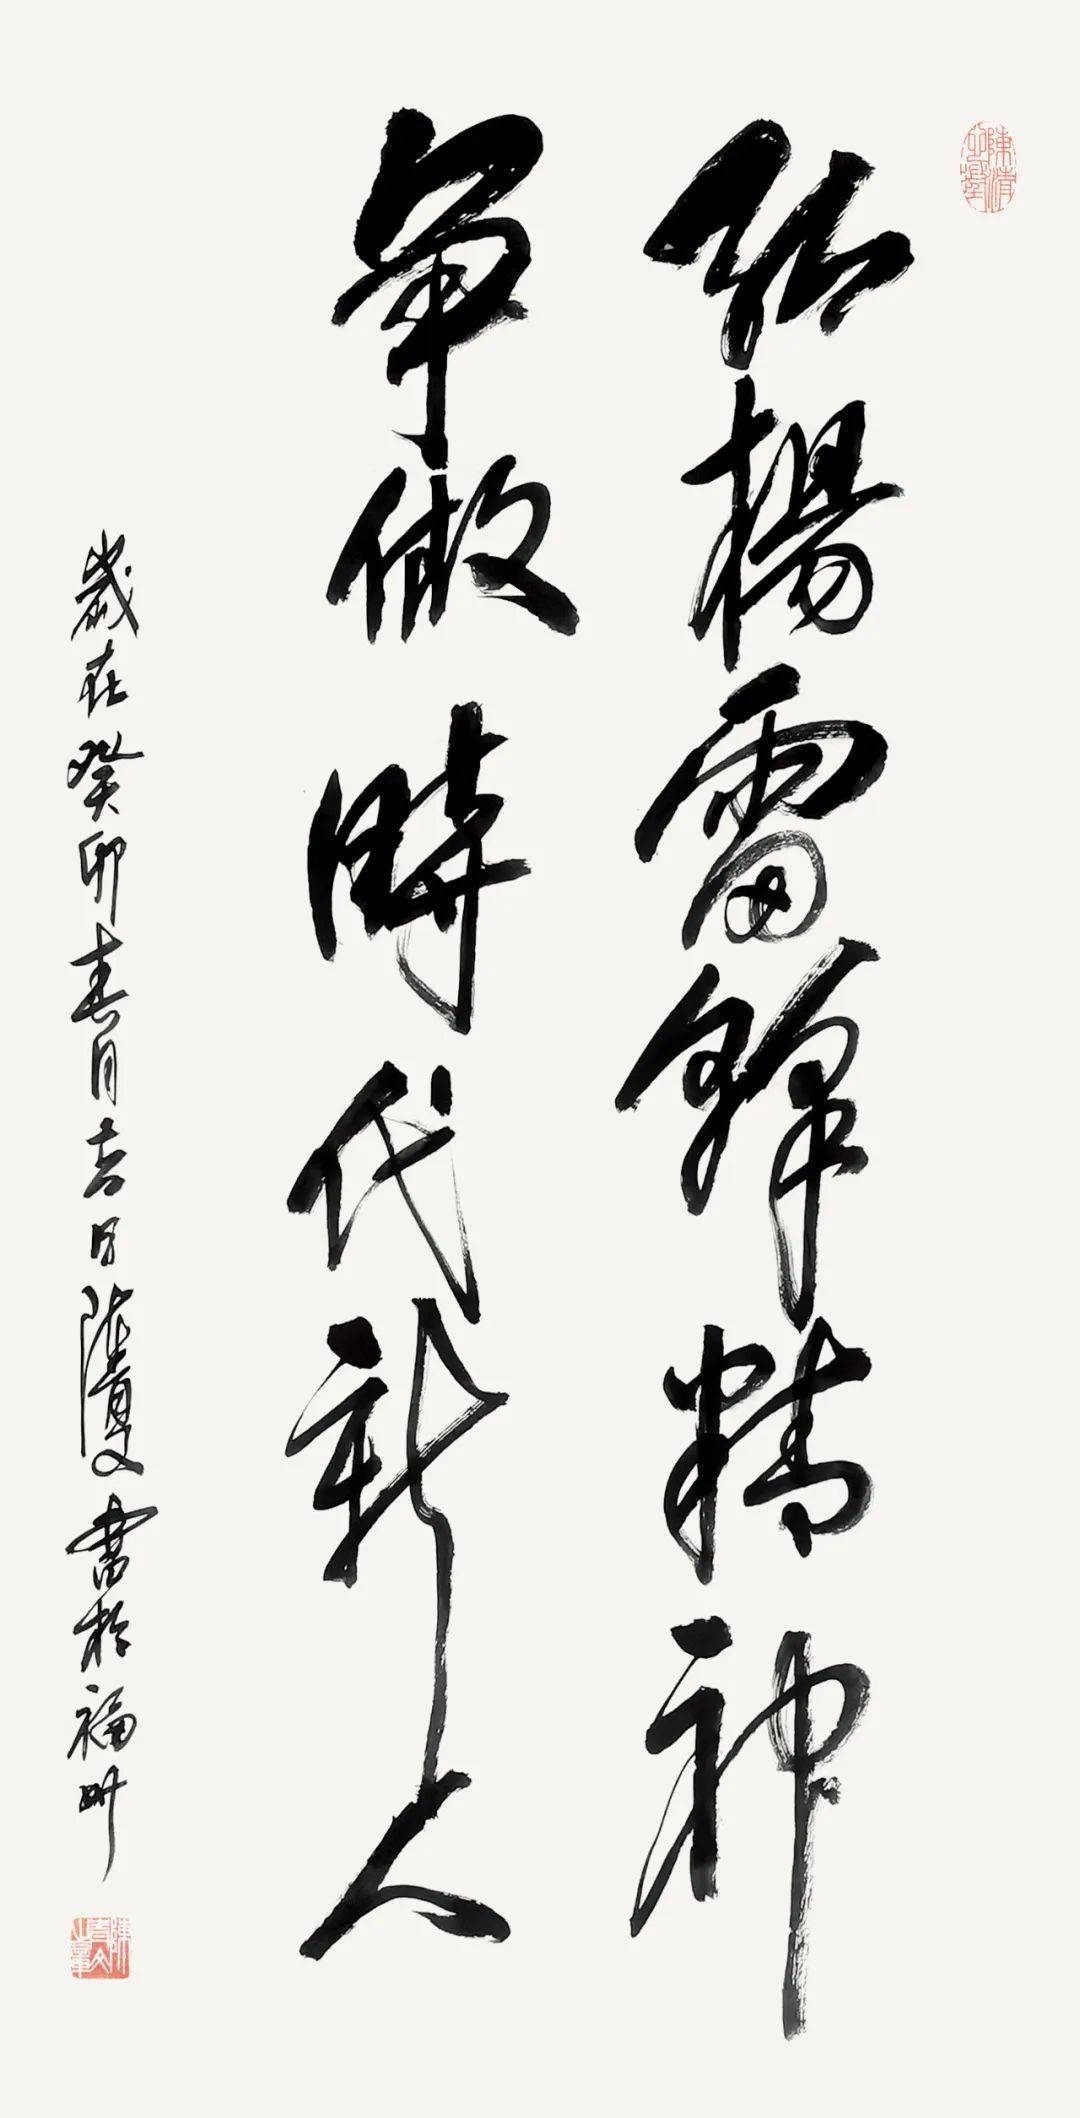 弘揚雷鋒精神
争做時代新人
歲在癸卯春月吉日 書於福州